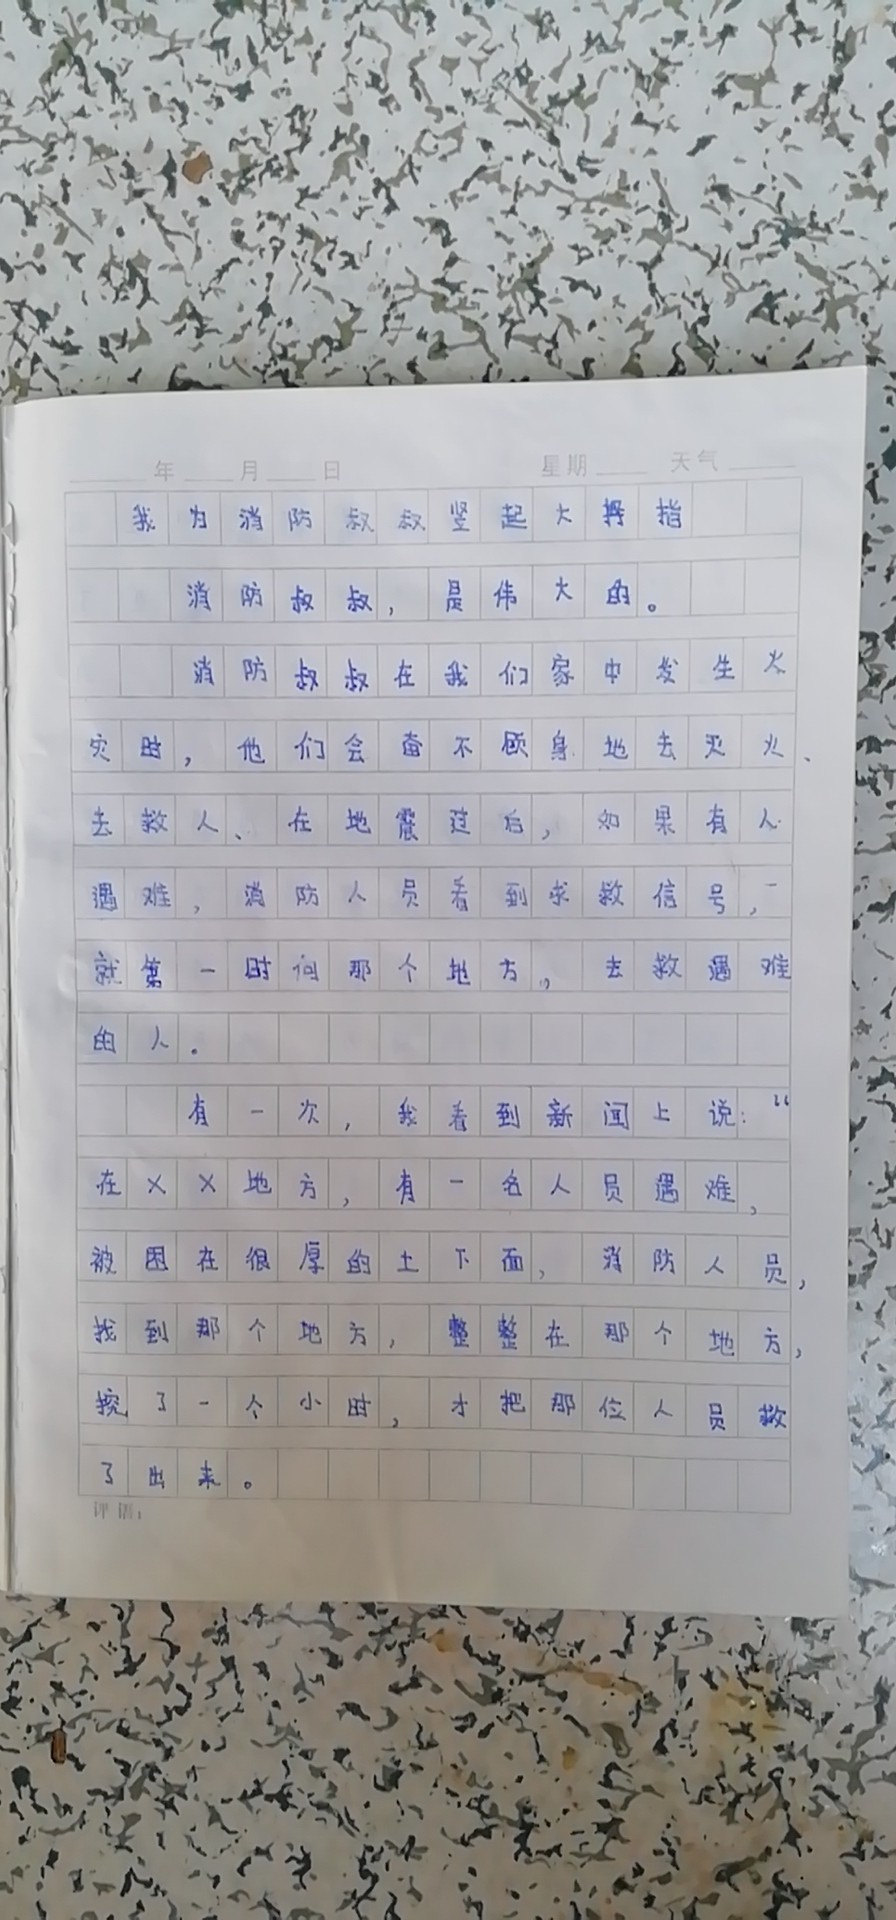 年 月 日 星期 天气
我为消防叔叔竖起大拇指
消防叔叔，是伟大的。
消防叔叔在我们家中发生火
灾时，他们会奋不顾身地去灭火、
去救人、在地震过后，如果有人
遇难，消防人员看到求救信号，一
就第一时间那个地方，去救遇难
的人。
有一次，我看到新闻上说：“
在××地方，有一名人员遇难，
被困在很厚的土下面，消防人员，
找到那个地方，整整在那个地方，
挖了一个小时，才把那位人员救
了出来。
评语：